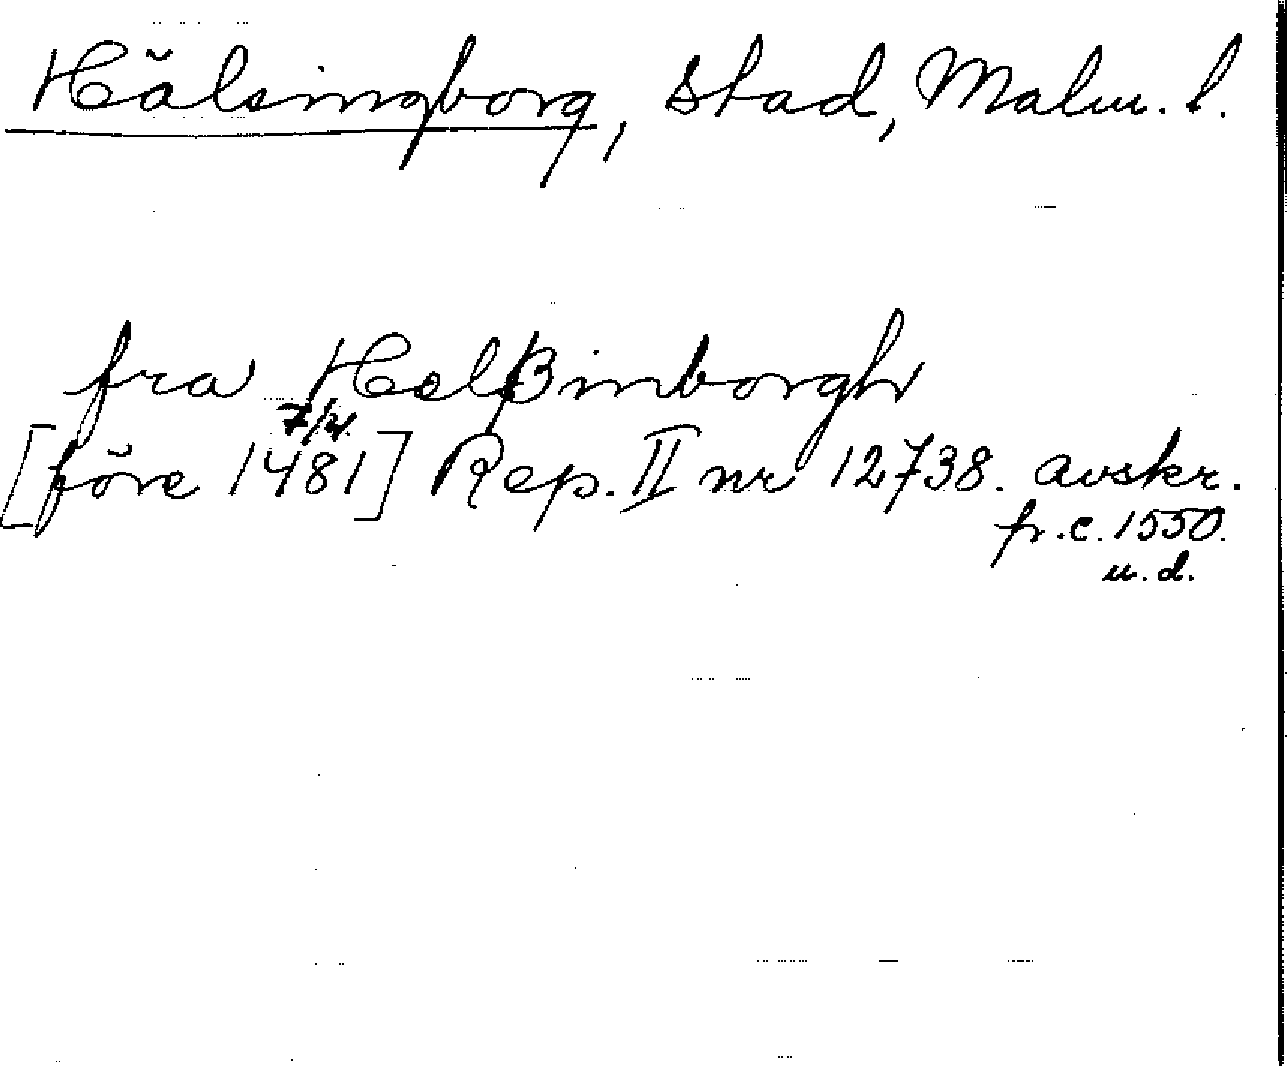 Hälsingborg, stad, Malm. l.
fra Helßinborgh
[före 7/4 1481] Rep. II nr 12738. avskr.
fr. c. 1550.
u. d.